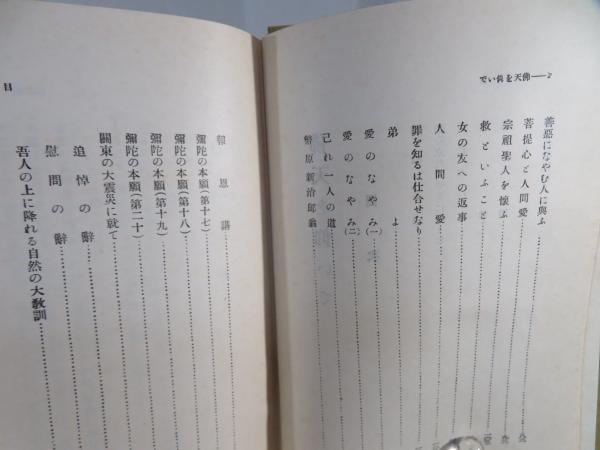 でい俯を天佛——2
善惡になやむ人に與ふ
菩提心と人間愛
宗祖聖人を懷ふ
救といふこと
女の友への返事
人間愛
罪を知るは仕合せなり
弟よ
愛のなやみ(一)
愛のなやみ(二)
己れ一人の道
幣原新治郎翁
報恩講
彌陀の本願(第十七)
彌陀の本願(第十八)
彌陀の本願(第十九)
彌陀の本願(第二十)
關東の大震災に就て
追悼の辭
慰問の辭
吾人の上に降れる自然の大敎訓
目